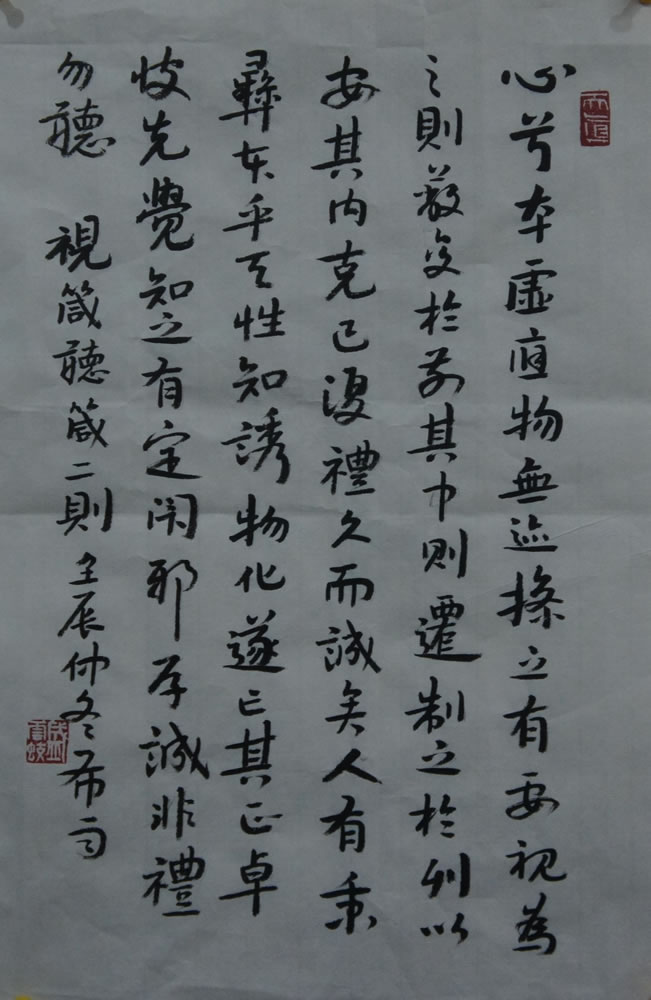 心兮本虛應物無迹操之有要視為
之則蔽交於前其中則遷制之於外以
安其內克己復禮久而誠矣人有秉
彝本乎天性知誘物化遂亡其正卓
彼先覺知止有定閑邪存誠非禮
勿聽 視箴聽箴二則 壬辰仲冬希